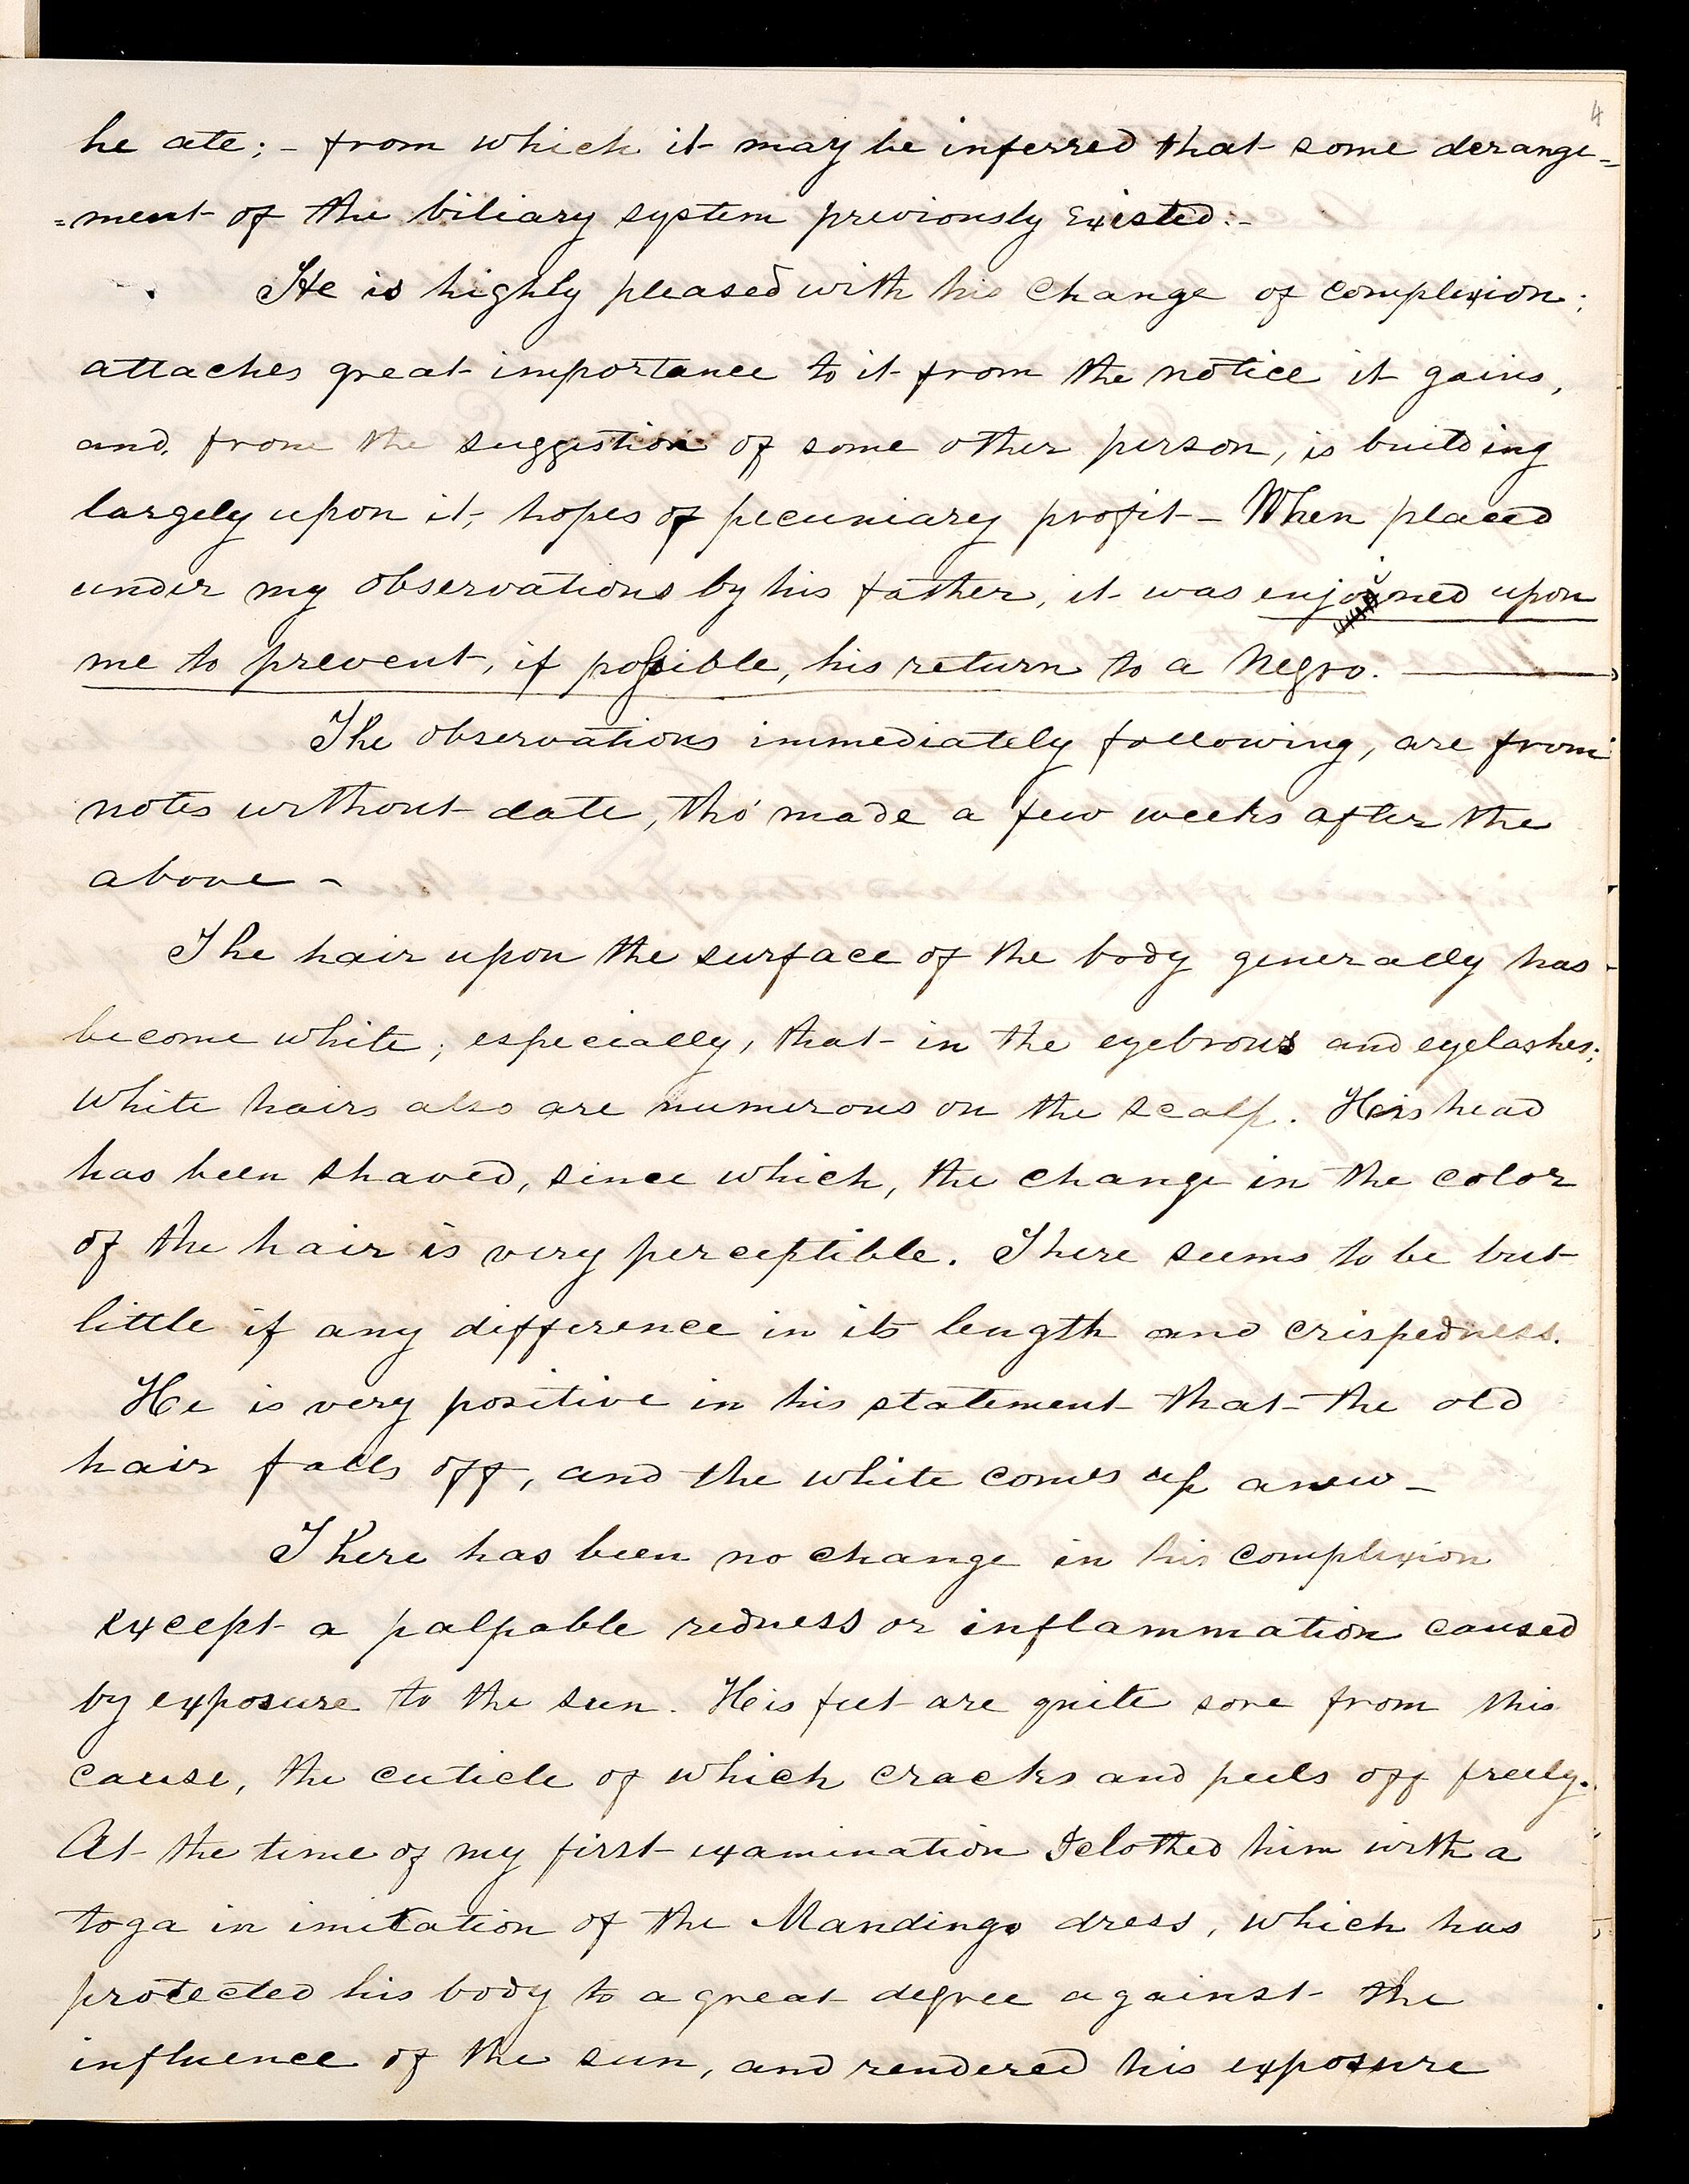 4
he ate; - from which it may be inferred that some derange=
=ment of the biliary system previously existed:-
He is highly pleased with his change of complexion;
attaches great importance to it from the notice it gains,
and, from the suggestion of some other person, is building
largely upon it, hopes of pecuniary profit - When placed
under my observations by his father, it was enjoined upon
me to prevent, if possible, his return to a Negro. ———
The observations immediately following, are from
notes without date, tho' made a few weeks after the
above -
The hair upon the surface of the body generally has
become white; especially, that in the eyebrows and eyelashes;
White hairs also are numerous on the scalp. His head
has been shaved, since which, the change in the color
of the hair is very perceptible. There seems to be but
little if any difference in its length and crispedness.
He is very positive in his statement that the old
hair falls off, and the white comes up anew -
There has been no change in his complexion
except a palpable redness or inflammation caused
by exposure to the sun. His feet are quite sore from this
cause, the cuticle of which cracks and peels off freely.
At the time of my first examination I clothed him with a
toga in imitation of the Mandingo dress, which has
protected his body to a great degree against the
influence of the sun, and rendered his exposure